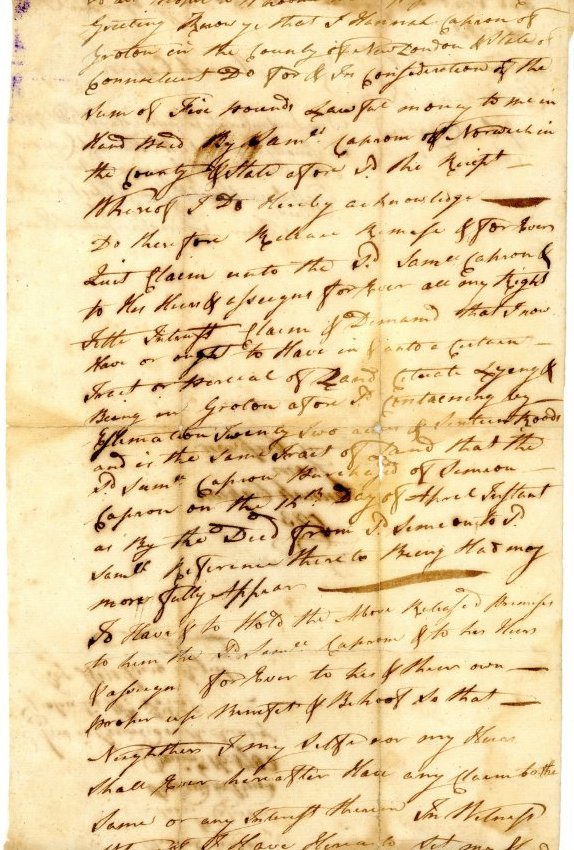 Greeting Know ye that I Hannah Capron of
Groton in the County of New London & State of
Connecticut Do for & In Consideration of the
Sum of Five pounds Lawful money to me in
Hand Paid By Samll Capron of Norwich in
the County & State afore Sd the Recipt —
Whereof I Do Hereby acknowledge —
Do therefore Release Remise & for Ever
Quit Claim unto the Sd Samll Capron &
to His Heirs & assigns for Ever all my Right
Title Intrust Claim & Demand that I now
Have or ought to Have in & unto a Certen —
Tract or parcial of Land Cituate Lyeing &
Being in Groton afore Sd Containing by
Estimation Twenty Two acres & Sixteen Roods
and is the Same Tract of Land that the
Sd Samll Capron Purchased of Simeon —
Capron on the 14th Day of April Instant
as By the Deed from Sd Simeon to Sd
Samll Reference there to Being Had may
more fully Appear —
To Have & to Hold the Above Released Premises
to him the Sd Samll Capron & to his Heirs
& assigns for Ever to his & their own —
proper use Benefit & Behoof So that —
Neighther I my Selfe nor any Heirs
Shall Ever hereafter Have any Claim to the
Same or any Interest therein In Witness
I Have Hereto Set my